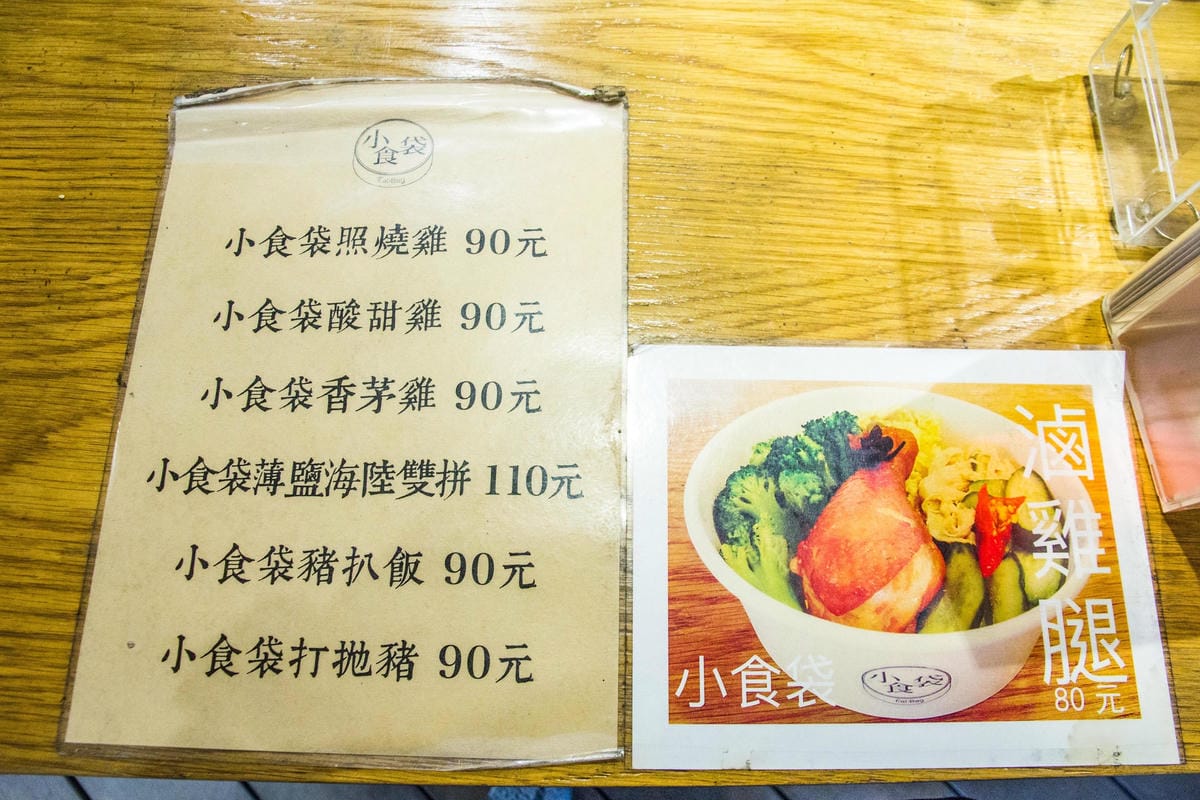 小食袋
Eat-Bag
小食袋照燒雞 90元
小食袋酸甜雞 90元
小食袋香茅雞 90元
小食袋薄鹽海陸雙拼 110元
小食袋豬扒飯 90元
小食袋打拋豬 90元
滷雞腿
80元
小食袋
小食袋
Eat-Bag